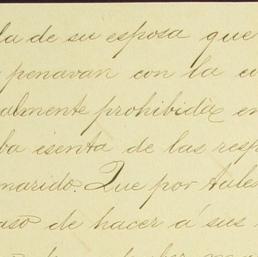 la de su esposa que
penavan con la
almente prohibida en
ba esenta de las resp
marido. Que por tales
aso de hacer á sus